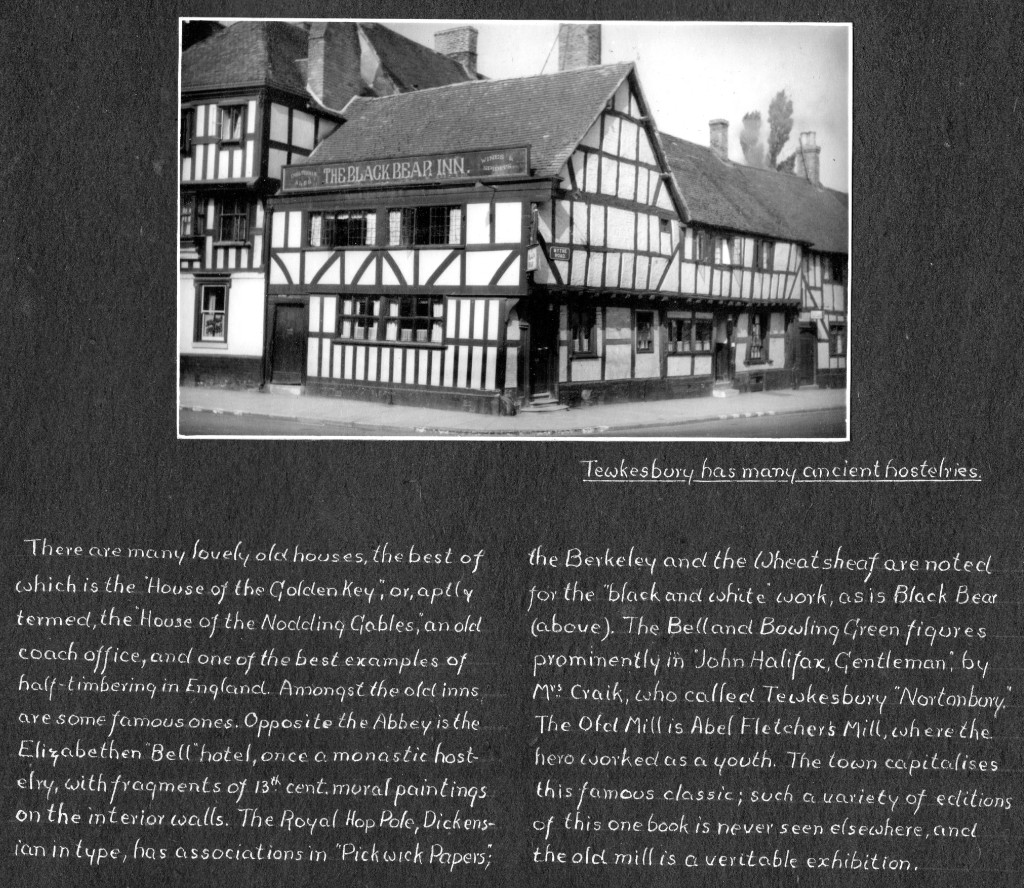 THE BLACK BEAR INN.
WINES &
Tewkesbury has many ancient hostelries.
There are many lovely old houses, the best of
which is the "House of the Golden Key", or, aptly
termed, the "House of the Nodding Gables," an old
coach office, and one of the best examples of
half-timbering in England. Amongst the old inns
are some famous ones. Opposite the Abbey is the
Elizabethen "Bell" hotel, once a monastic host-
elry, with fragments of 13th cent. mural paintings
on the interior walls. The Royal Hop Pole, Dickens-
ian in type, has associations in "Pickwick Papers";
the Berkeley and the Wheatsheaf are noted
for the "black and white" work, as is Black Bear
(above). The Bell and Bowling Green figures
prominently in "John Halifax, Gentleman", by
Mrs Craik, who called Tewkesbury "Nortonbury".
The Old Mill is Abel Fletcher's Mill, where the
hero worked as a youth. The town capitalises
this famous classic; such a variety of editions
of this one book is never seen elsewhere, and
the old mill is a veritable exhibition.